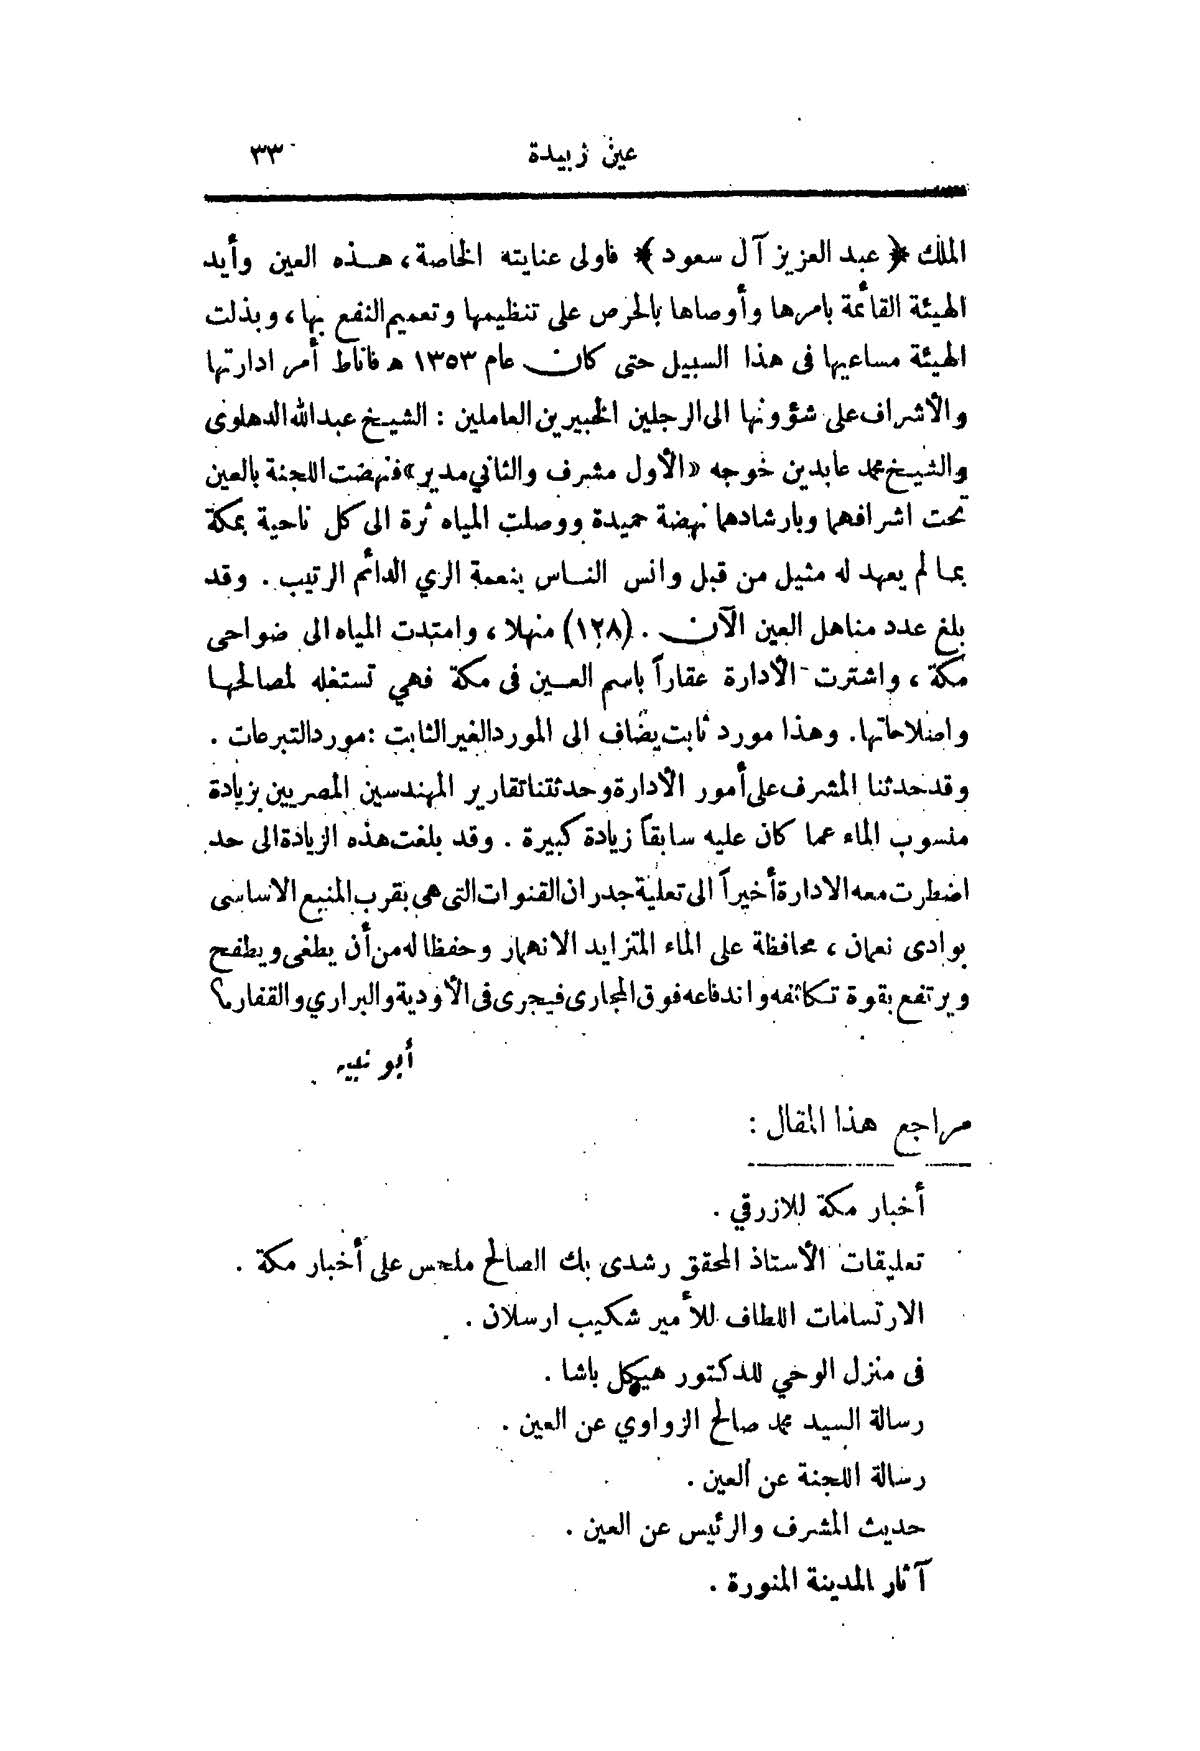 عين زبيدة ٣٣
الملك ﴿ عبد العزيز آل سعود ﴾ فاولى عنايته الخاصة، هذه العين وأيد
الهيئة القائمة بامرها وأوصاها بالحرص على تنظيمها وتعميم النفع بها، وبذلت
الهيئة مساعيها فى هذا السبيل حتى كان عام ١٣٥٣ هـ فاناط أمر ادارتها
والأشراف على شؤونها الى الرجلين الخبيرين العاملين : الشيخ عبدالله الدهلوى
والشيخ محمد عابدين خوجه «الأول مشرف والثاني مدير» فنهضت اللجنة بالعين
تحت اشرافهما وبارشادهما نهضة حميدة ووصلت المياه ثرة الى كل ناحية بمكة
بما لم يعهد له مثيل من قبل وانس الناس بنعمة الري الدائم الرتيب . وقد
بلغ عدد مناهل العين الآن . (١٢٨) منهلا ، وامتدت المياه الى ضواحى
مكة ، واشترت الأدارة عقاراً باسم العين فى مكة فهي تستغله لمصالحها
واصلاحاتها. وهذا مورد ثابت يضاف الى المورد الغير الثابت : مورد التبرعات .
وقد حدثنا المشرف على أمور الأدارة وحدثتنا تقارير المهندسين المصريين بزيادة
منسوب الماء عما كان عليه سابقاً زيادة كبيرة . وقد بلغت هذه الزيادة الى حد
اضطرت معه الادارة أخيراً الى تعلية جدران القنوات التى هى بقرب المنبع الاساسى
بوادى نعمان ، محافظة على الماء المتزايد الانهمار وحفظا له من أن يطغى ويطفح
ويرتفع بقوة تكاثفه واندفاعه فوق المجارى فيجرى فى الأودية والبراري والقفار.؟
أبو نبيه
مراجع هذا المقال :
أخبار مكة للازرقي .
تعليقات الأستاذ المحقق رشدى بك الصالح ملحس على أخبار مكة .
الارتسامات اللطاف للأمير شكيب ارسلان .
فى منزل الوحي للدكتور هيكل باشا .
رسالة السيد محمد صالح الزواوي عن العين .
رسالة اللجنة عن العين .
حديث المشرف والرئيس عن العين .
آثار المدينة المنورة .